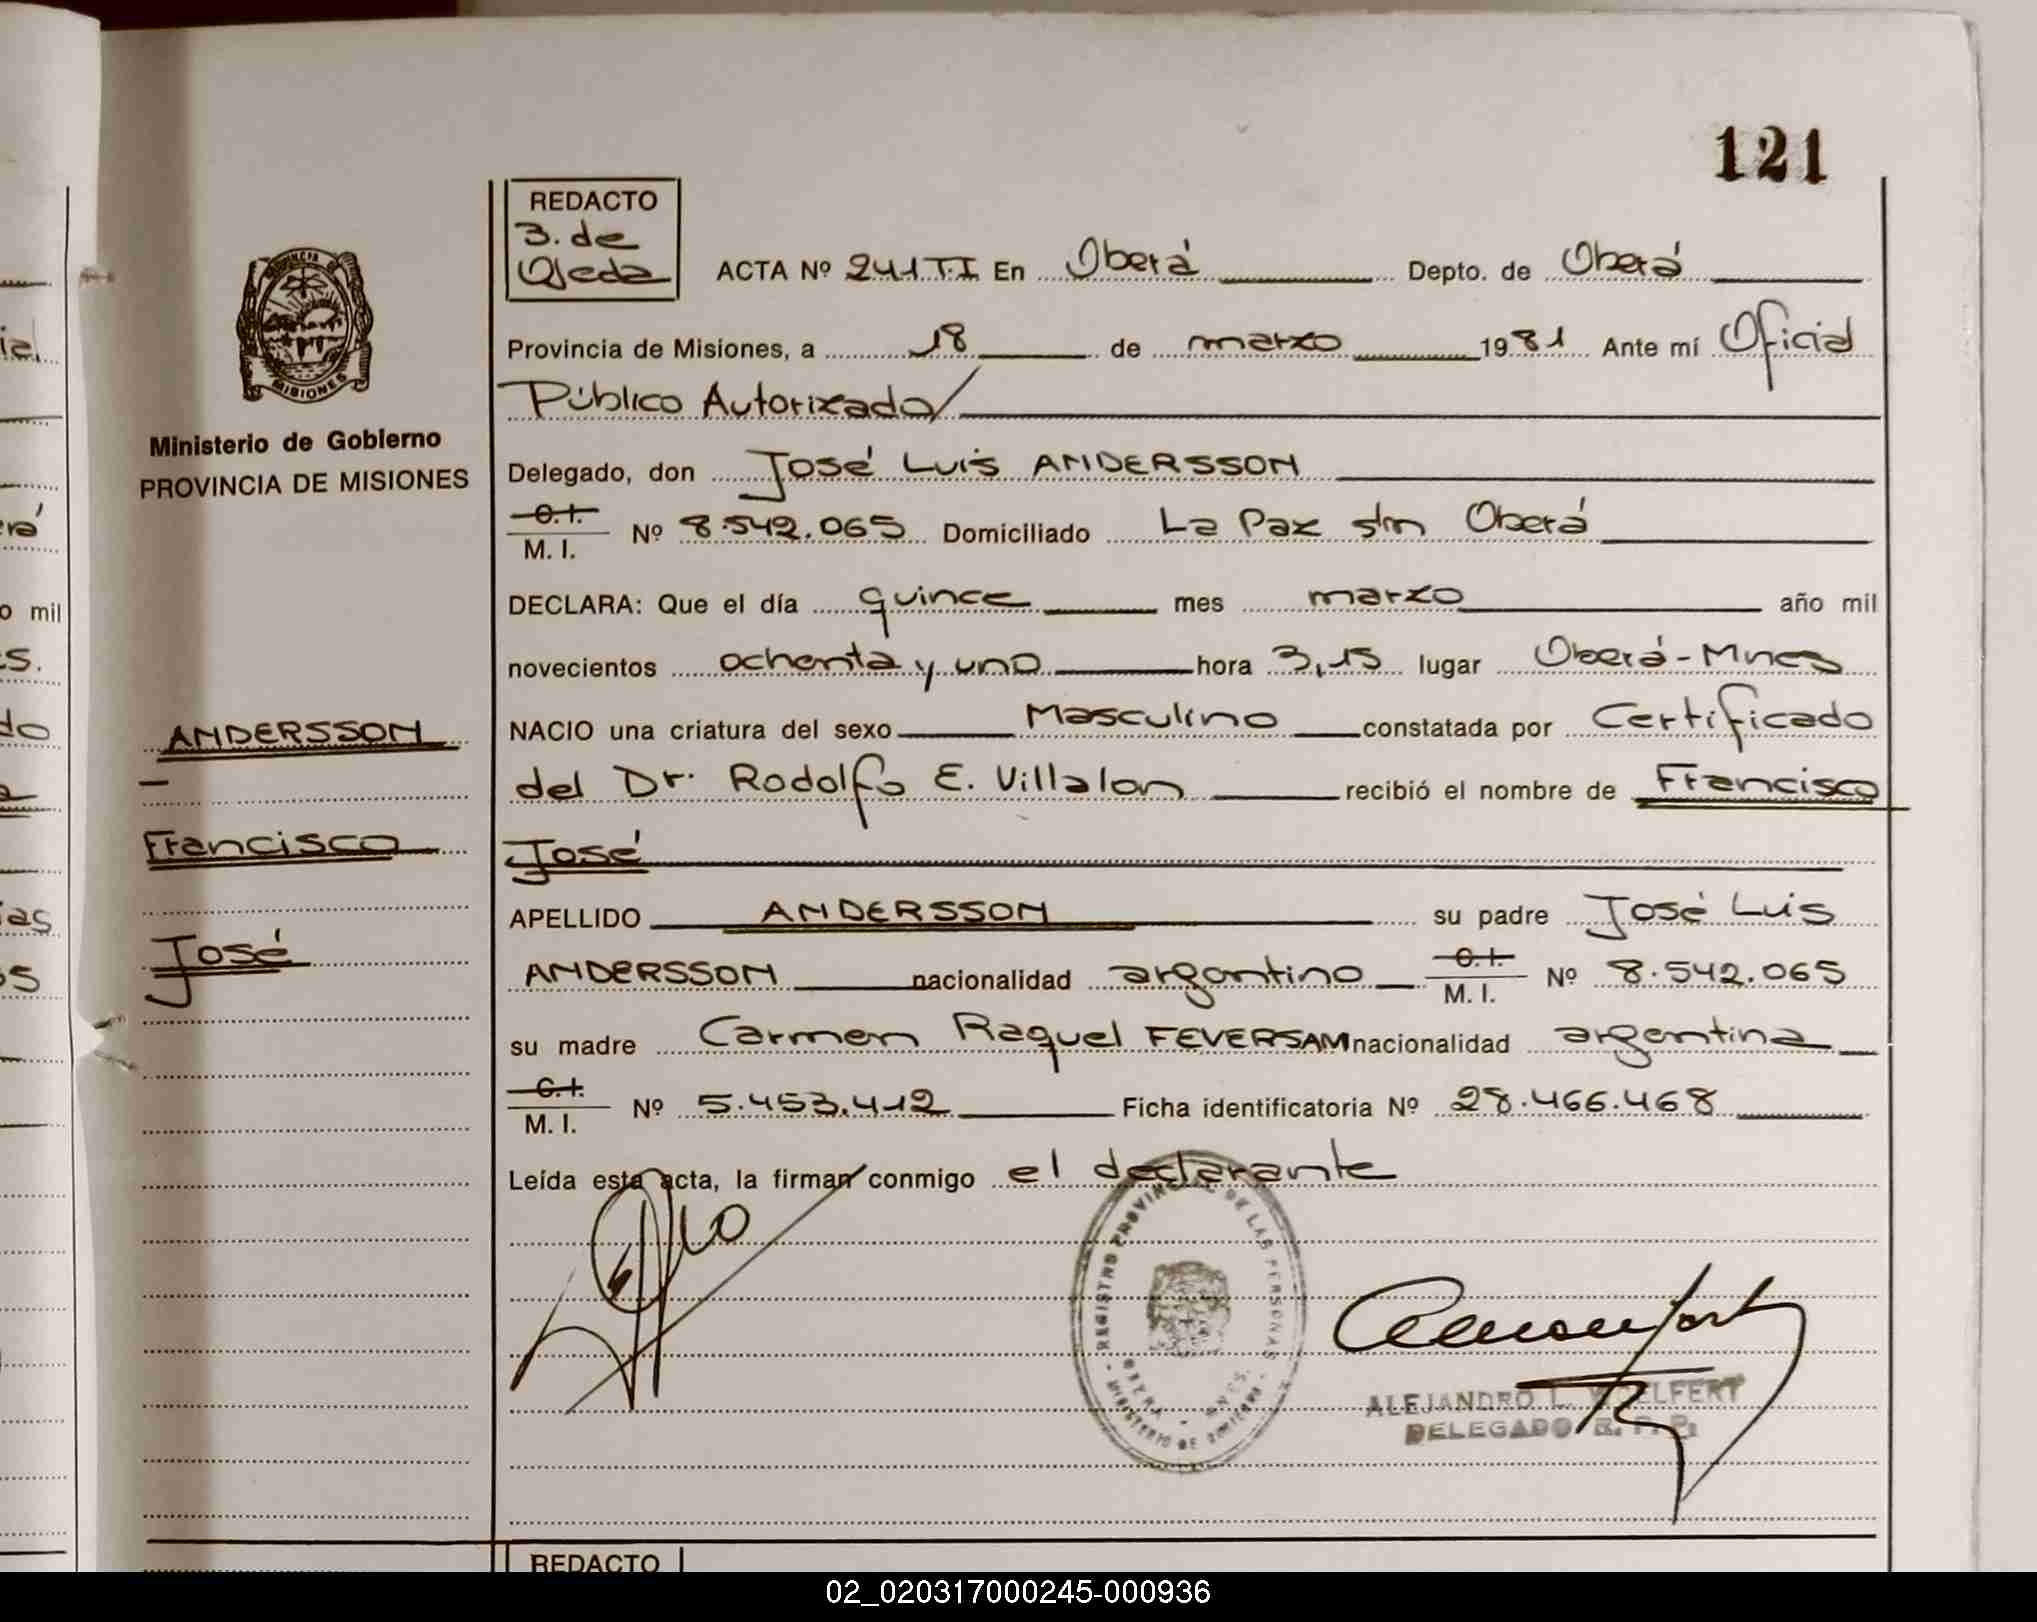 121
REDACTO
3. de
Ojeda
ACTA Nº 241 T.I En Oberá Depto. de Oberá
Provincia de Misiones, a 18 de marzo 1981 Ante mí Oficial
Público Autorizado
Ministerio de Gobierno
PROVINCIA DE MISIONES
Delegado, don José Luis ANDERSSON
C.I.
M. I. Nº 8.542.065 Domiciliado La Paz s/n Oberá
DECLARA: Que el día quince mes marzo año mil
novecientos ochenta y uno hora 3,15 lugar Oberá-Mnes
NACIO una criatura del sexo Masculino constatada por Certificado
del Dr. Rodolfo E. Villalon recibió el nombre de Francisco
José
ANDERSSON
Francisco
José
APELLIDO ANDERSSON su padre José Luis
ANDERSSON nacionalidad argentino C.I. M. I. Nº 8.542.065
su madre Carmen Raquel FEVERSAM nacionalidad argentina
C.I.
M. I. Nº 5.453.412 Ficha identificatoria Nº 28.466.468
Leída esta acta, la firman conmigo el declarante
REGISTRO PROVINCIAL DE LAS PERSONAS
OBERA - MNES.
MINISTERIO DE GOBIERNO
ALEJANDRO L. WOELFERT
DELEGADO R. P. P.
REDACTO
PROVINCIA DE
MISIONES
ial
erá
o mil
s.
do
a
ias
os
02_020317000245-000936